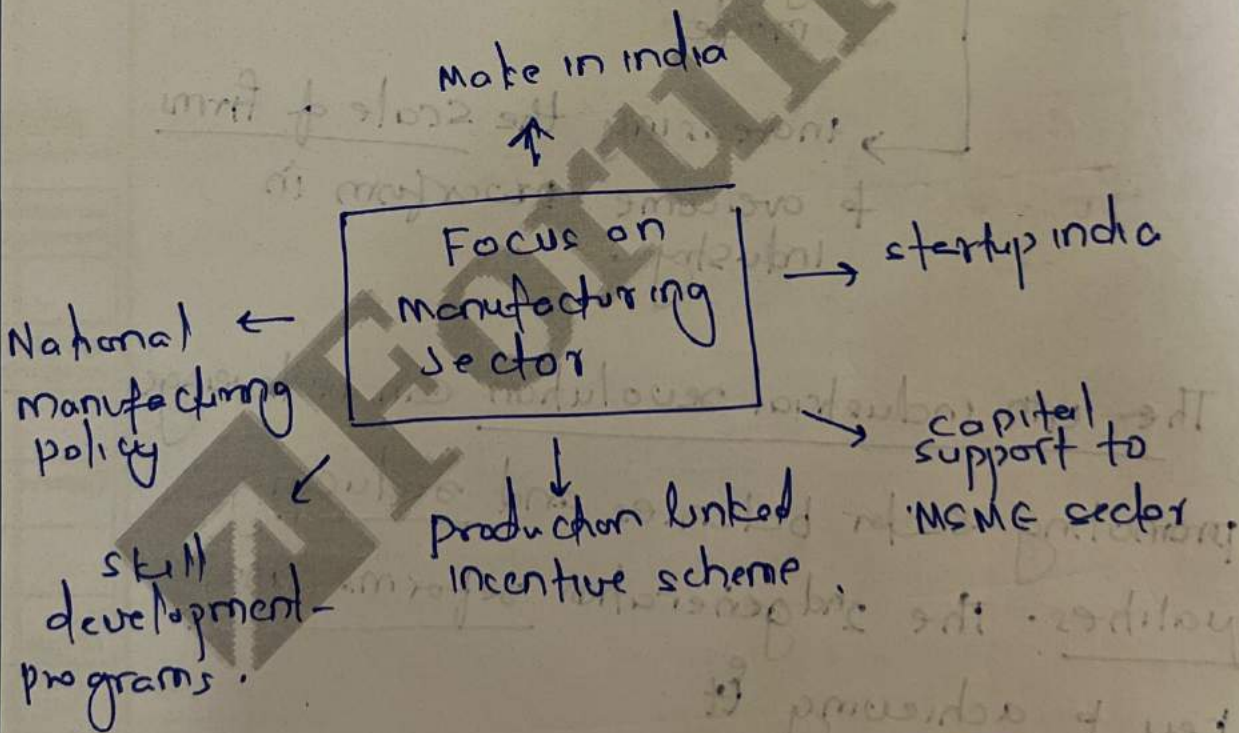 Make in india
Focus on
manufacturing
sector
startup india
National
manufacturing
policy
capital
support to
MSME sector.
Production linked
incentive scheme.
skill
development
programs.
Forum